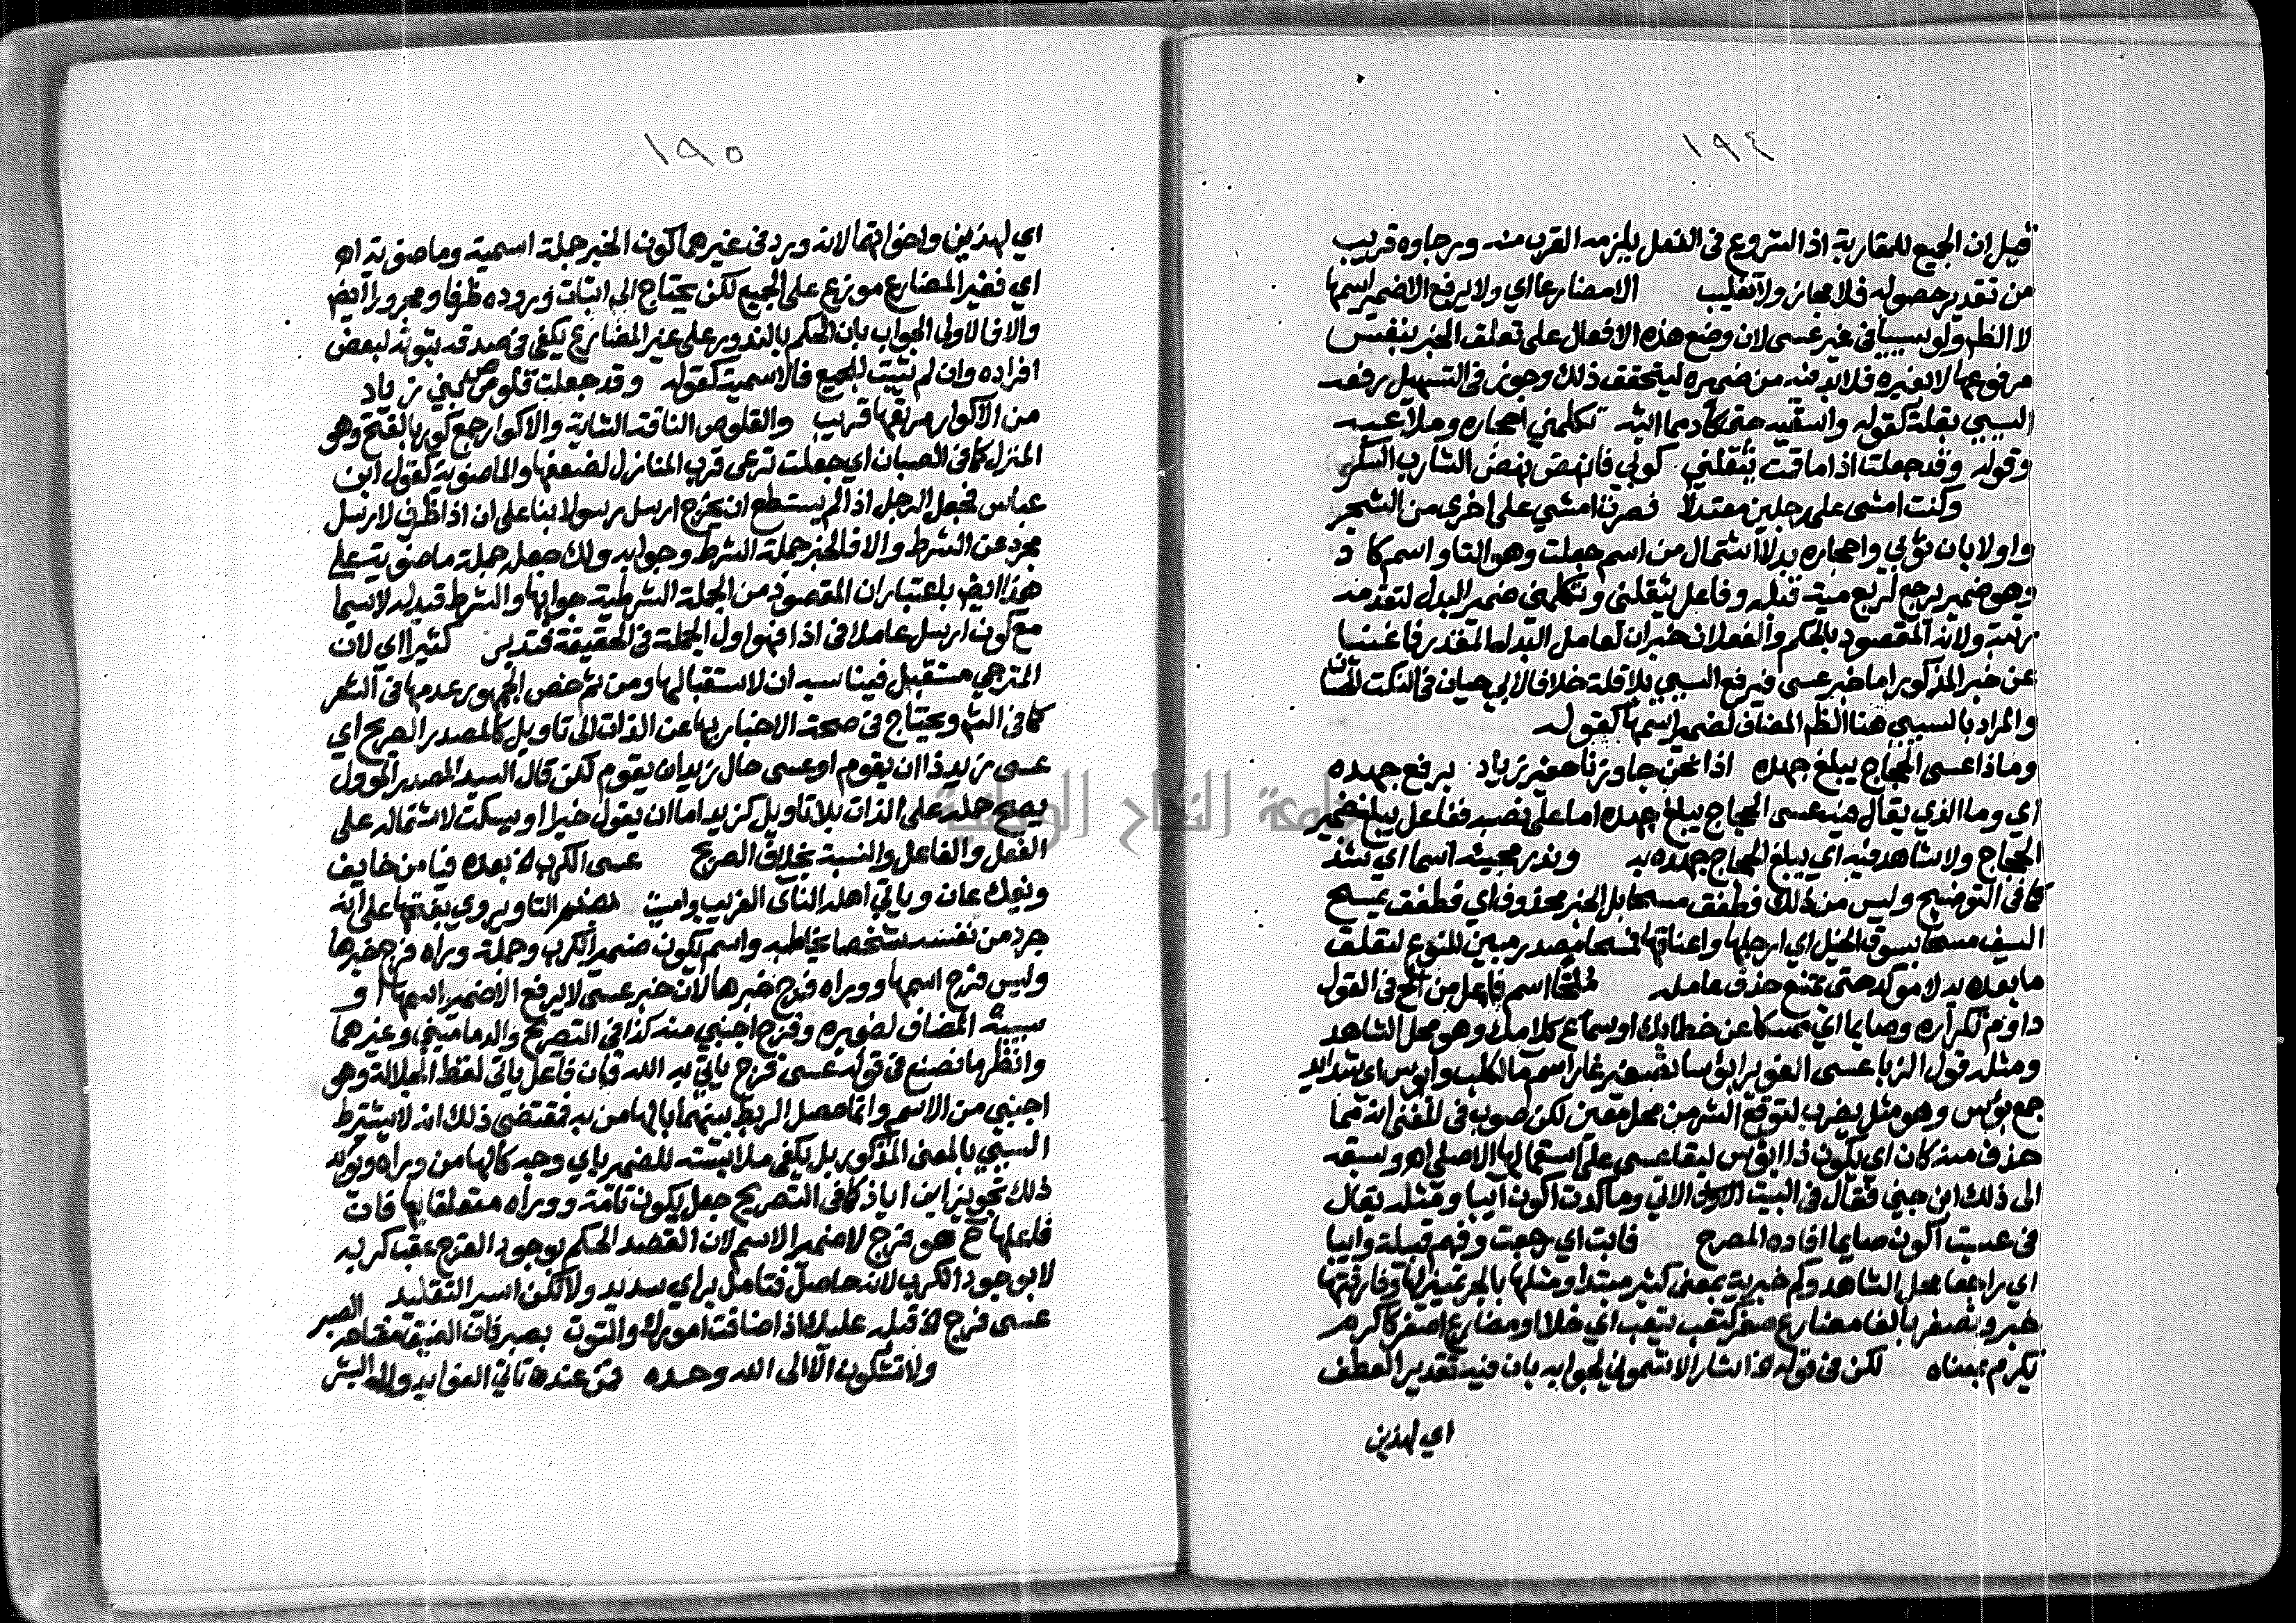 ١٩٤
قيل ان الجميع للمقاربة اذ الشروع في الفعل يلزمه القرب منه ورجاوه قريب
من تقدير حصوله فلا مجاز ولا تغليب الا مضارعا اي ولا يرفع الا ضمير اسمها
لا الظم ولو سببيا في غير عسى لان وضع هذه الافعال على تعلق الخبر بنفس
مرفوعها لا بغيره فلا بد فيه من ضميره ليتحقق ذلك وجوز في التسهيل رفعه
السببي بقلة كقوله واسقيه حتى كاد مما ابثه تكلمني احجاره وملاعبه
وقوله وقد جعلت اذا ما قمت يثقلني ثوبي فانهض نهض الشارب السكر
وكنت امشي على رجلين معتدلا فصرت امشي على اخرى من الشجر
واولا بان ثوبي واحجاره بدلا اشتمال من اسم جعلت وهو التا واسم كاد
وهو ضمير يرجع لربع مية قبله وفاعل يثقلني وتكلمني ضمير البدل لتقدمه
رتبة ولانه المقصود بالحكم والفعلان خبران لعامل البدل المقدر فاغنيا
عن خبر المذكور اما خبر عسى فيرفع السببي بلا قلة خلافا لابي حيان في النكت الحسان
والمراد بالسببي هنا الظم المضاف لضمير اسمها كقوله
وماذا عسى الحجاج يبلغ جهده اذا نحن جاوزنا حفير زياد برفع جهده
اي وما الذي يقال فيه عسى الحجاج يبلغ جهده اما على نصبه ففاعل يبلغ ضمير
الحجاج ولا شاهد فيه اي يبلغ الحجاج جهده به وندر مجيئه اسما اي شذ
كما في التوضيح وليس من ذلك فطفق مسحا بل الخبر محذوف اي فطفق يمسح
السيف مسحا بسوق الخيل اي ارجلها واعناقها فمسحا مصدر مبين للنوع لتعلق
ما بعده به لا موكد حتى يمتنع حذف عامله ملحا اسم فاعل من الح في القول
داوم تكراره وصايما اي ممسكا عن خطابك او سماع كلامك وهو محل الشاهد
ومثله قول الزبا عسى الغوير ابؤسا تصغير غار اسم ما لكلب وابوس اي شدائد
جمع بؤس وهو مثل يضرب لتوقع الشر من محل معين لكن صوب في المغني انه مما
حذف منه كان اي يكون ذا ابؤس لبقا عسى على استعمالها الاصلي اه وسبقه
الى ذلك ابن جني فقال في البيت الاول الاتي وما كدت اكون آيبا ومثله يقال
في عسيت اكون صايما افاده المصرح فابت اي رجعت وفهم قبيلة وآيبا
اي راجعا محل الشاهد وكم خبرية بمعنى كثير مبتدا ومثلها بالجر تمييزها وفارقتها
خبر وتصفر بالفا مضارع صفر كتعب يتعب اي خلا او مضارع اصفر كاكرم
يكرم بمعناه لكن في قوله الخ اشار الاشموني لجوابه بان فيه تقدير العطف
اي لهذين
١٩٥
اي لهذين واخواتها لانه ورد في غيرهما كون الخبر جملة اسمية وماضوية اه
اي فغير المضارع موزع على الجميع لكن يحتاج الى اثبات وروده ظرفا ومجرورا ايض
والا فالاولى الجواب بان الحكم بالندور على غير المضارع يكفي في صدقه ثبوته لبعض
افراده وان لم يثبت للجميع فالاسمية كقوله وقد جعلت قلوص بني زياد
من الاكوار مرتعها قريب والقلوص الناقة الشابة والاكوار جمع كور بالفتح وهو
المنزل كما في الصبان اي جعلت ترعى قرب المنازل لضعفها والماضوية كقول ابن
عباس فجعل الرجل اذا لم يستطع ان يخرج ارسل رسولا بنا على ان اذا ظرف لارسل
مجرد عن الشرط والا فالخبر جملة الشرط وجوابه ولك جعله جملة ماضوية على
هذا ايض باعتبار ان المقصود من الجملة الشرطية جوابها والشرط قيد له لاسيما
مع كون ارسل عاملا في اذا فهو اول الجملة في الحقيقة فتدبر كثيرا اي لان
المترجي مستقبل فيناسبه ان لاستقبالها ومن ثم خص الجمهور عدمها في الشعر
كما في الشم ويحتاج في صحة الاخبار بها عن الذات الى تاويل كالمصدر الصريح اي
عسى زيد ذا ان يقوم او عسى حال زيد ان يقوم لكن قال السيد المصدر المؤول
يصح حمله على الذات بلا تاويل كزيد اما ان يقول خيرا او يسكت لاشتماله على
الفعل والفاعل والنسبة بخلاف الصريح عسى الكرب الخ بعده فيامن خايف
ويفك عان وياتي اهله النائي الغريب وامسيت بضم التا ويروي بفتحها على انه
جرد من نفسه شخصا يخاطبه واسم يكون ضمير الكرب وجملة وراه فرج خبرها
وليس فرج اسمها ووراه فرج خبرها لان خبر عسى لا يرفع الا ضمير اسمها او
سببيه المضاف لضميره وفرج اجنبي منه كذا في التصريح والدماميني وغيرهما
وانظر ما نصنع في قوله عسى فرج ياتي به الله فان فاعل ياتي لفظ الجلالة وهو
اجنبي من الاسم وانما حصل الربط بينهما بالها من به فمقتضى ذلك انه لا يشترط
السببي بالمعنى المذكور بل يكفي ملابسته للضمير باي وجه كالها من وراه ويؤيد
ذلك تجويز ابن اياز كما في التصريح جعل يكون تامة ووراه متعلقا بها فان
فاعلها ح هو فرج لا ضمير الاسم لان القصد الحكم بوجود الفرج عقب كربه
لا بوجود الكرب لانه حاصل فتامل براي سديد ولا تكن اسير التقليد
عسى فرج الخ قبله عليك اذا ضاقت امورك والتوت بصبر فان الضيق مفتاحه الصبر
ولا تشكون الا الى الله وحده فمن عنده تاتي الفوايد والبشر